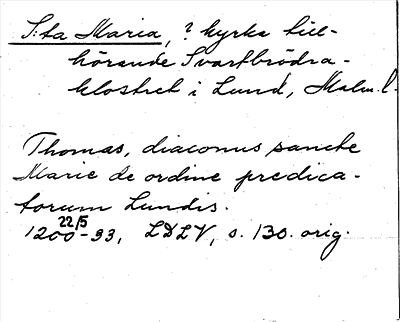 S:ta Maria, ? kyrka till-
hörande Svartbrödra-
klostret i Lund, Malm.l.
Thomas, diaconus sancte
Marie de ordine predica-
torum Lundis.
22/5
1200-93, LDLV, s. 130. orig.